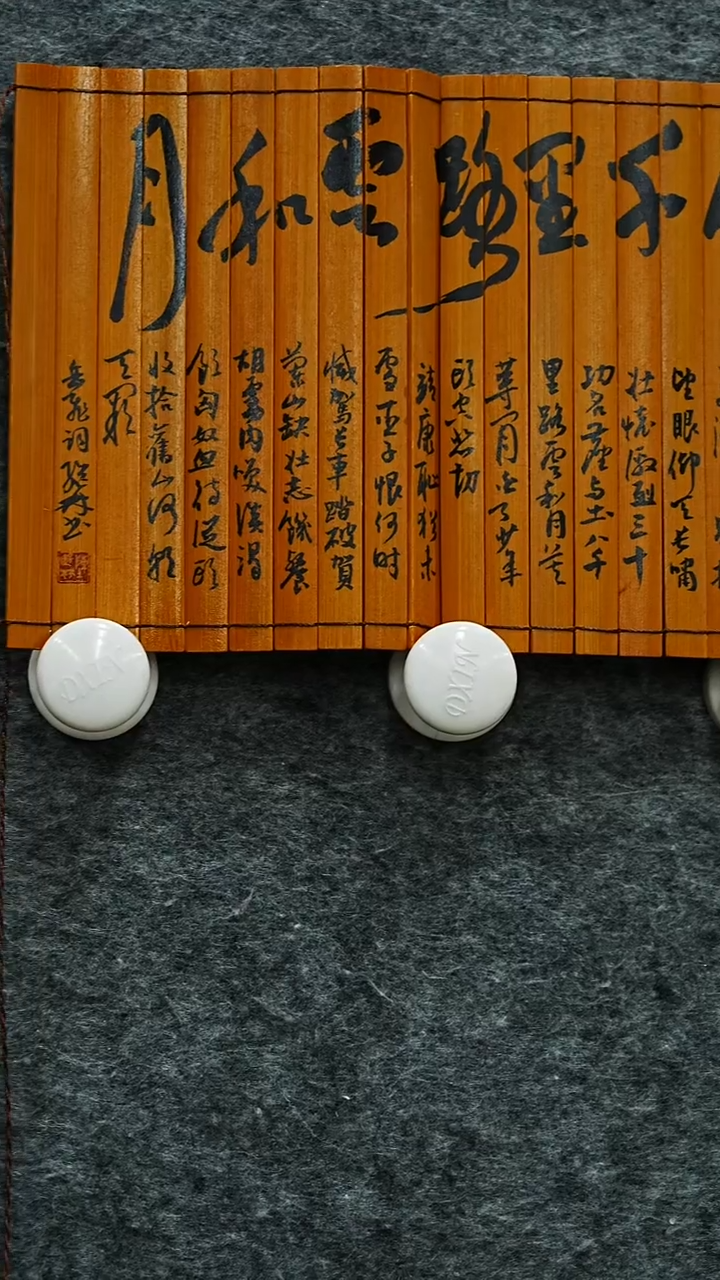 千里路雲和月
望眼仰天長嘯
壯懷激烈三十
功名塵与土八千
里路雲和月莫
等閒白了少年
頭空悲切
靖康恥猶未
雪臣子恨何時
滅駕長車踏破賀
蘭山缺壯志饑餐
胡虜肉笑談渴
飲匈奴血待從頭
收拾舊山河朝
天闕
岳飛詞